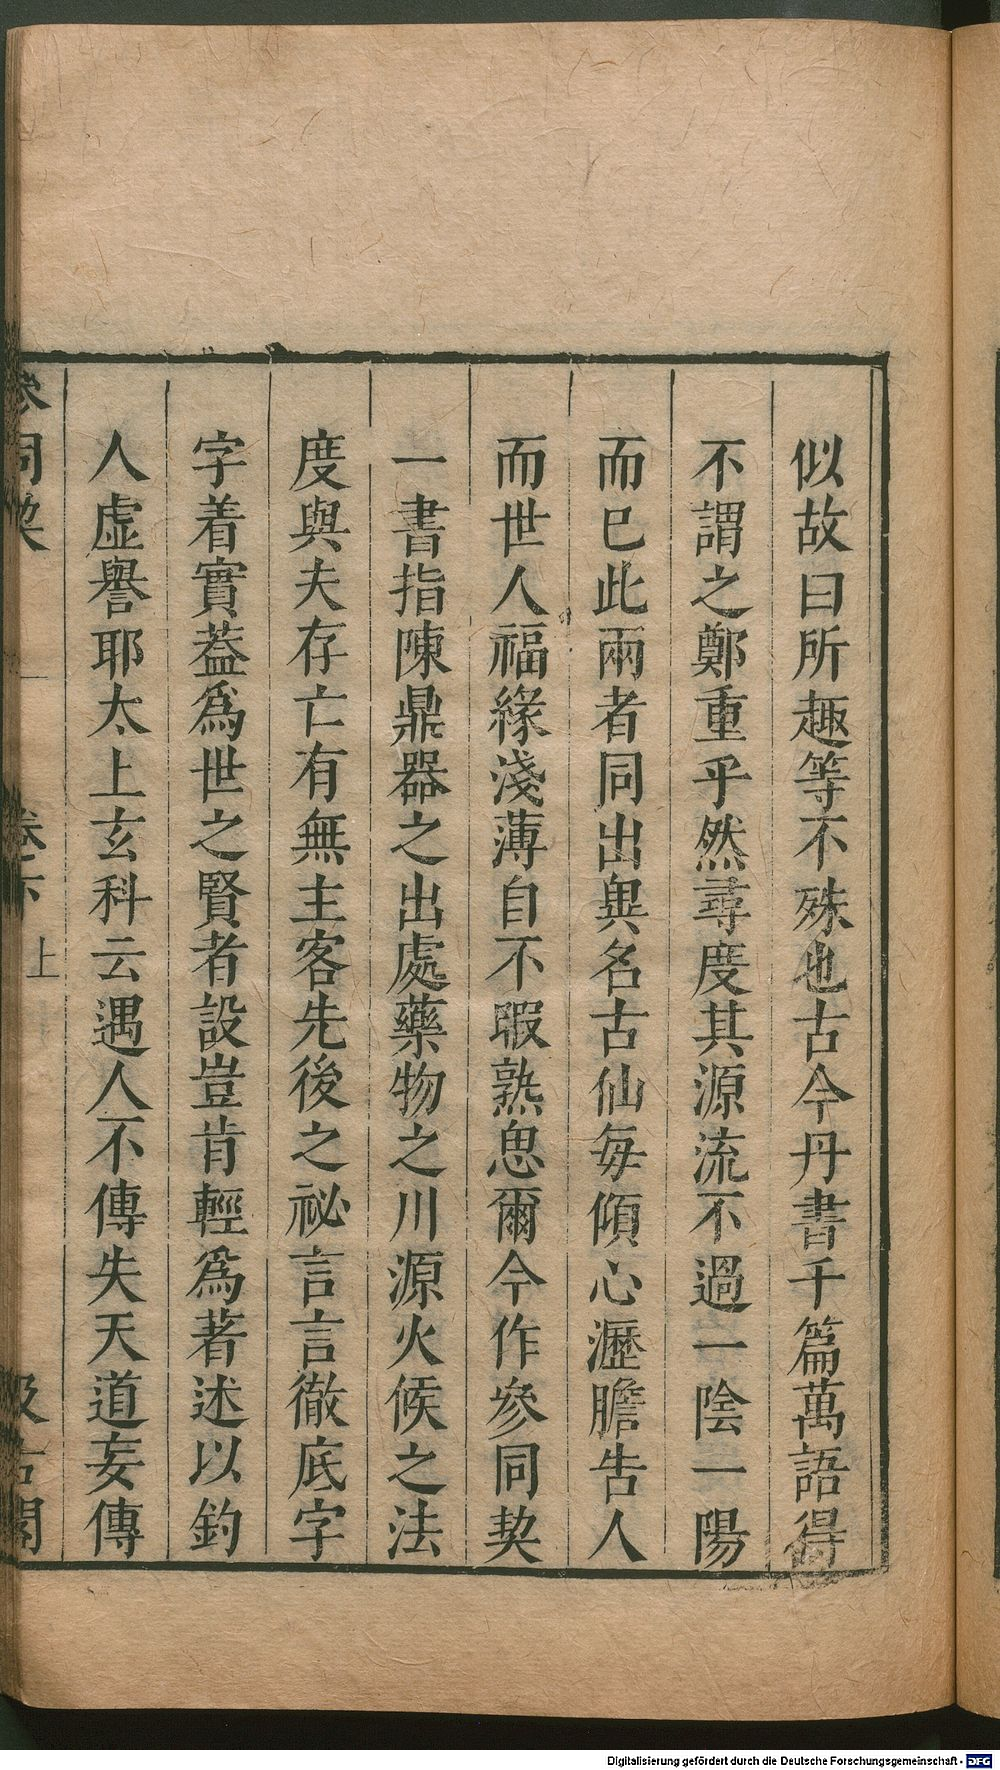 似故曰所趣等不殊也古今丹書千篇萬語得
不謂之鄭重乎然尋度其源流不過一陰一陽
而已此兩者同出異名古仙每傾心瀝膽告人
而世人福緣淺薄自不暇熟思爾今作參同契
一書指陳鼎器之出處藥物之川源火候之法
度與夫存亡有無主客先後之祕言言徹底字
字着實蓋爲世之賢者設豈肯輕爲著述以釣
人虛譽耶太上玄科云遇人不傳失天道妄傳
參同契 卷下 上 汲古閣
Digitalisierung gefördert durch die Deutsche Forschungsgemeinschaft - DFG